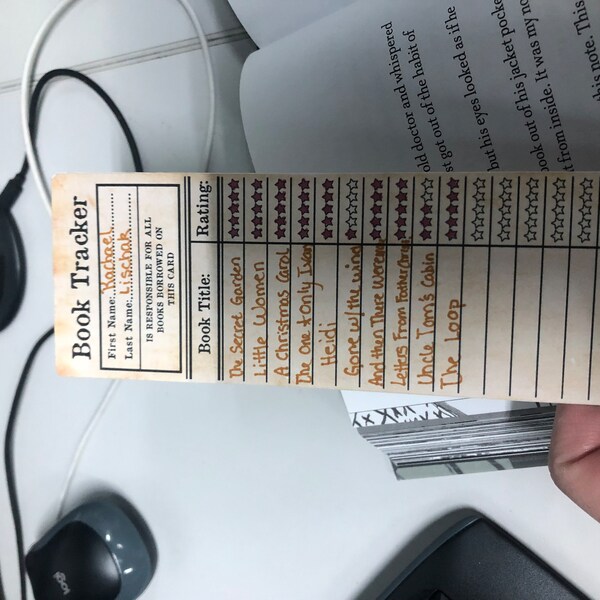 Book Tracker
First Name: Rachael
Last Name: Lischak
IS RESPONSIBLE FOR ALL
BOOKS BORROWED ON
THIS CARD
Book Title: Rating:
The Secret Garden
Little Women
A Christmas Carol
The One & Only Ivan
Heidi
Gone w/ the wind
And then There Were
Letters From Father
Uncle Tom's Cabin
The Loop
old doctor and whispered
st got out of the habit of
but his eyes looked as if he
ook out of his jacket pocke
t from inside. It was my no
this note. This
logi